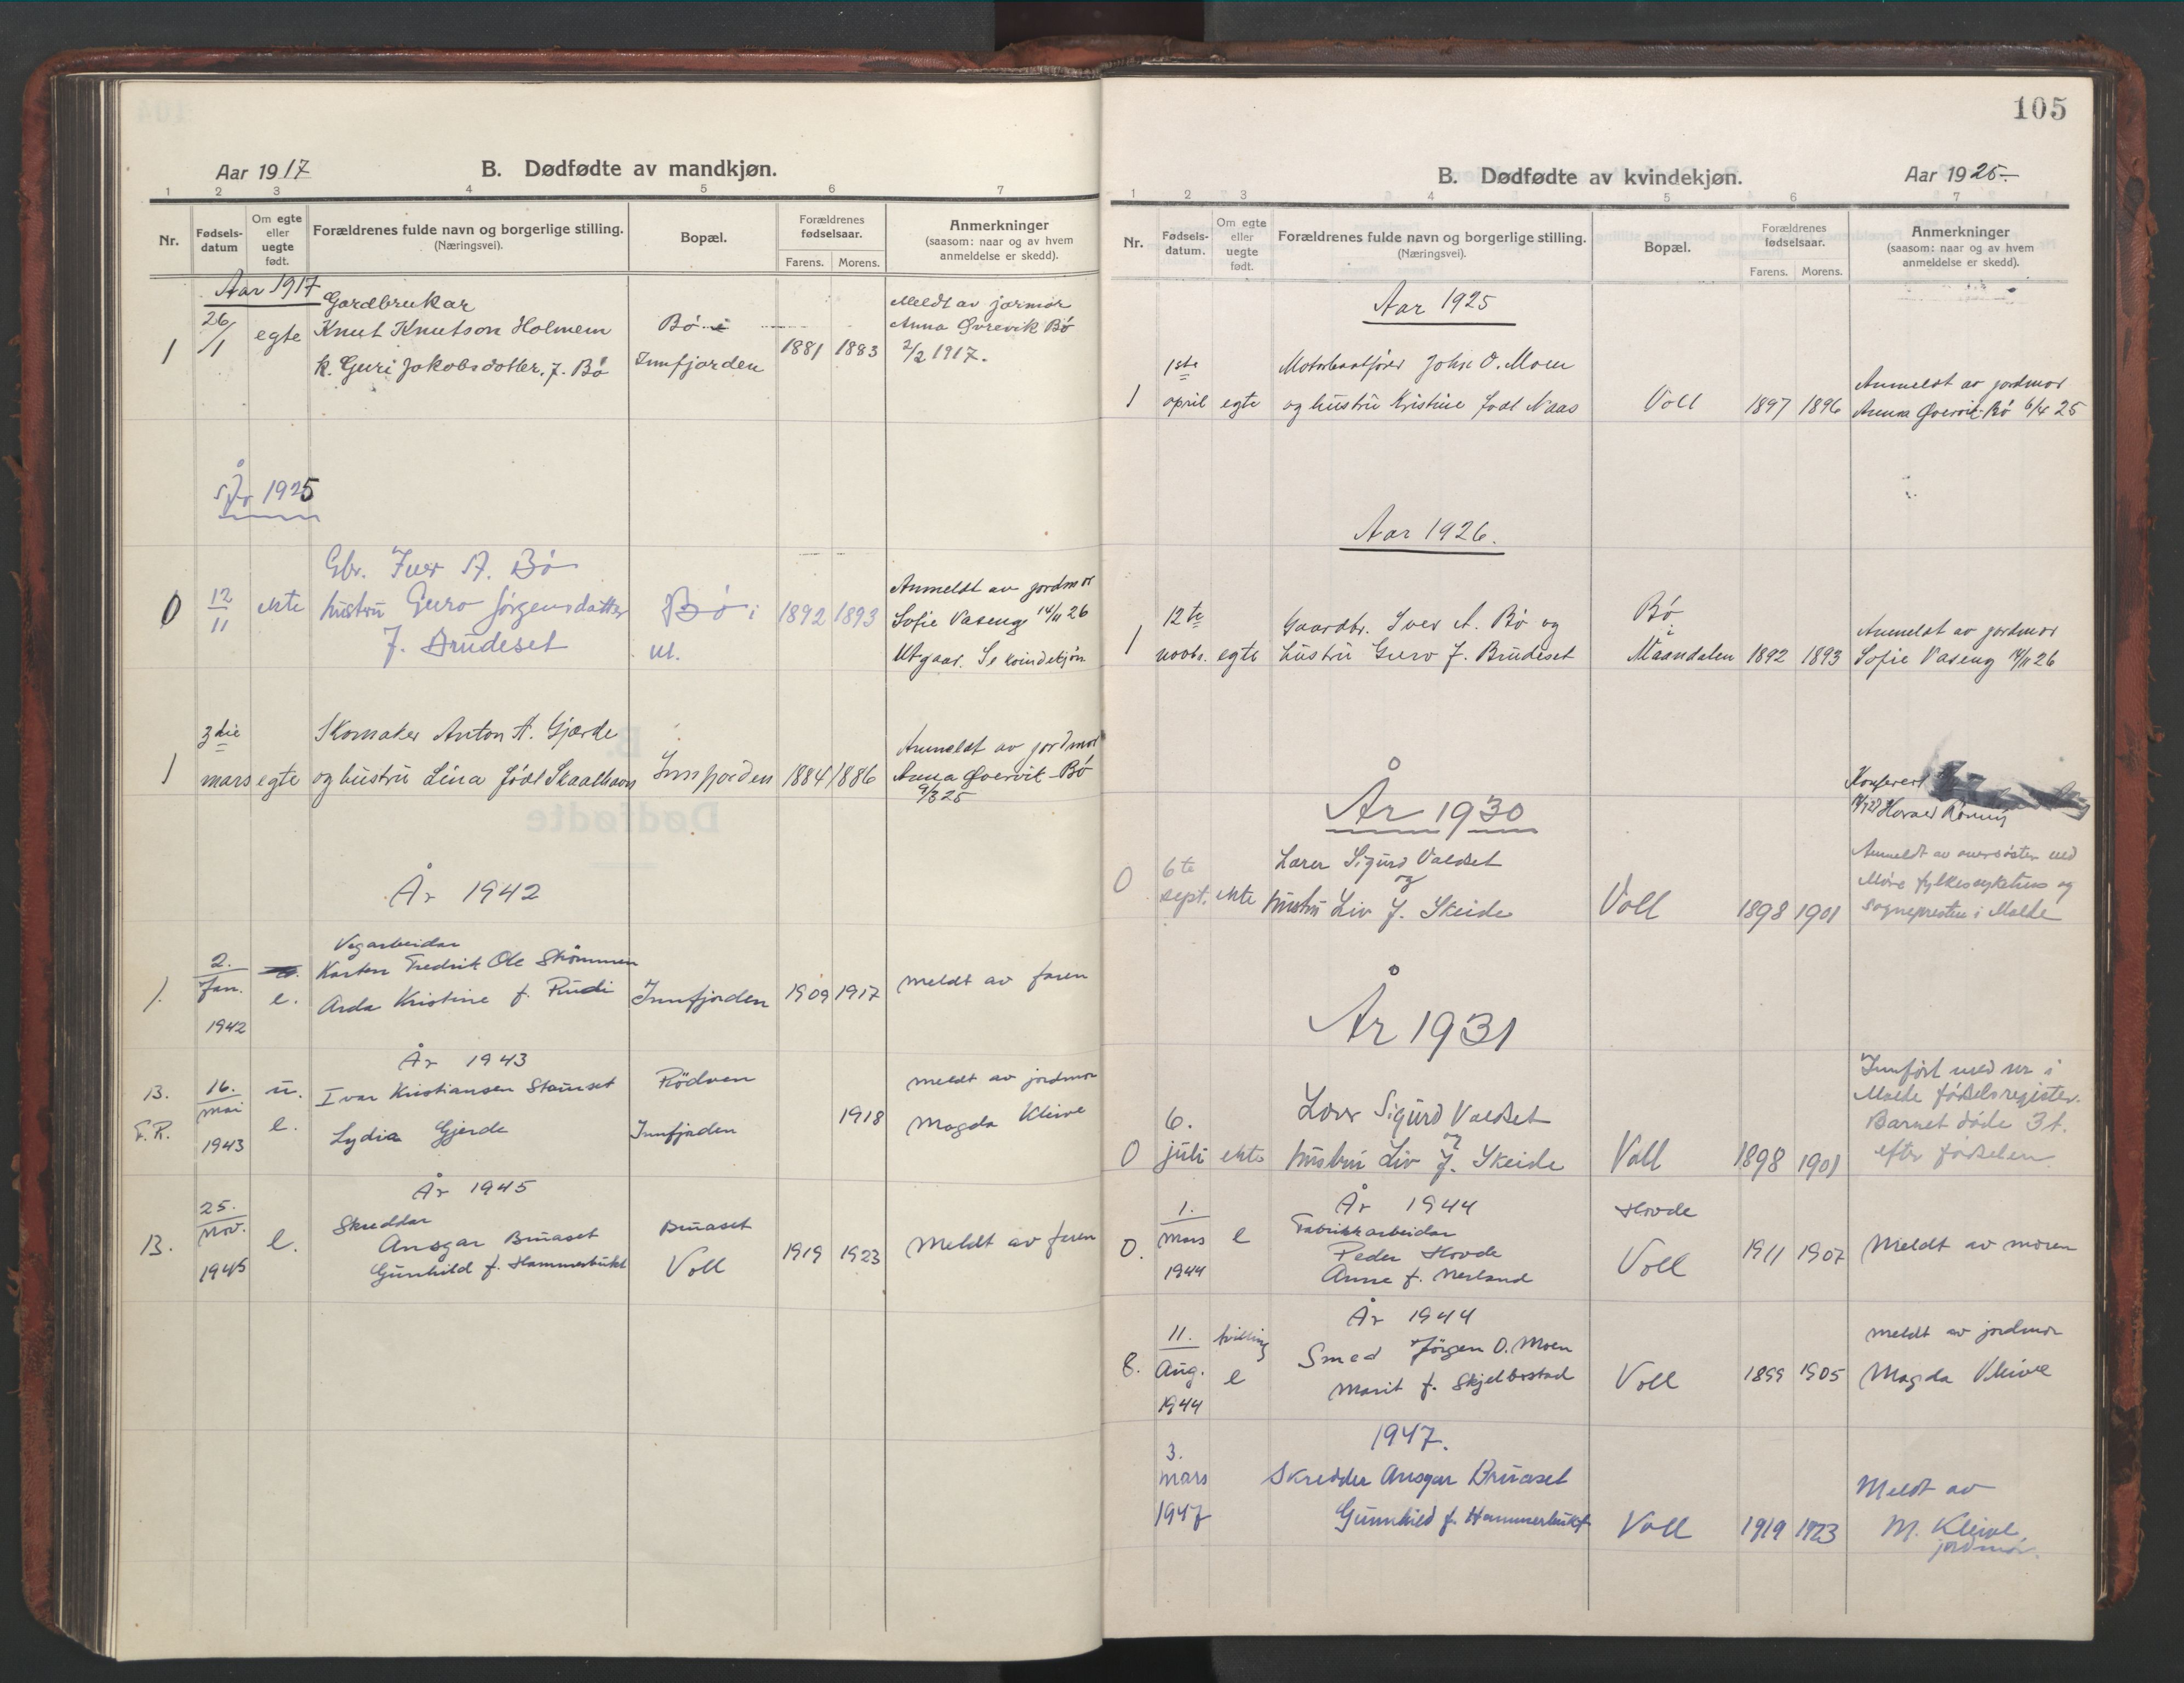 Aar 1917 B. Dødfødte av mandkjøn.
1 2 3 4 5 6 7
Nr. Fødsels-datum Om egte eller uegte født. Forældrenes fulde navn og borgerlige stilling. (Næringsvei). Bopæl. Forældrenes fødselsaar. Farens. Morens. Anmerkninger (saasom: naar og av hvem anmeldelse er skedd).
Aar 1917
Gardbrukar Meldt av jormor
26/1 egte Knut Knutson Holmem Bø i Anna Øvrevik Bø
1 k. Guri Jakobsdotter, f. Bø Innfjorden 1881 1883 2/2 1917.
År 1925
Gbr. Iver A. Bø Anmeldt av jordmor
0 12/11 ekte hustru Guro Jørgensdatter Bø i 1892 1893 Sofie Vaseng 14/11 26
f. Brudeset Utgaar. Se kvindekjøn
3die Skomaker Anton A. Gjærde Anmeldt av jordmor
1 mars egte og hustru Lina født Skaalhavn Innfjorden 1884 1886 Anna Øvervik-Bø
9/3 25
År 1942
Vegarbeidar
2. Karsten Fredrik Ole Strømmen
1. Jan. e. Arda Kristine f. Rudi Innfjorden 1909 1917 Meldt av faren
1942
År 1943
B. 16. u. Ivar Kristiansen Stamset Rødven Meldt av jordmor
F.R. mai e. Lydia Gjerde Innfjorden 1918 Magda Kleive
1943
År 1945
25. Skreddar
B. Nov. e. Ansgar Bruaset Bruaset 1919 1923 Meldt av faren
1945 Gunhild f. Hammerbukt Voll
105
B. Dødfødte av kvindekjøn. Aar 1925.-
1 2 3 4 5 6 7
Nr. Fødsels-datum. Om egte eller uegte født. Forældrenes fulde navn og borgerlige stilling. (Næringsvei). Bopæl. Forældrenes fødselsaar. Farens. Morens. Anmerkninger (saasom: naar og av hvem anmeldelse er skedd).
Aar 1925
1ste Motorbaatfører John O. Moen Anmeldt av jordmor
1 april egte og hustru Kristine født Naas Voll 1897 1896 Anna Øvervik-Bø 6/4 25
Aar 1926.
12te Gaardbr. Iver A. Bø og Bø i Anmeldt av jordmor
1 novbr. egte hustru Guro f. Brudeset Maandalen 1892 1893 Sofie Vaseng 14/11 26
Konferert
År 1930
6te Lærer Sigurd Valdset Anmeldt av oversøster ved
0 sept. ekte og Møre fylkessykehus og
hustru Liv f. Skeide Voll 1898 1901 sognepresten i Molde
År 1931
Innført med nr i
Molde fødselsregister.
6. Lærer Sigurd Valdset Barnet døde 3 t.
0 juli ekte og hustru Liv f. Skeide Voll 1898 1901 efter fødselen
År 1944
1. Fabrikkarbeidar Hovde
0. Mars e Peder Hovde Voll 1911 1907 Meldt av moren
1944 Anne f. Nerland
År 1944
11. tvilling Smed Jørgen O. Moen Meldt av jordmor
Aug. e Marit f. Skjelbostad Voll 1899 1905 Magda Kleive
1944
1947.
3.
mars Skredder Ansgar Bruaset Meldt av
1947 Gunnhild f. Hammerbukt Voll 1919 1923 M. Kleive,
jordmor.